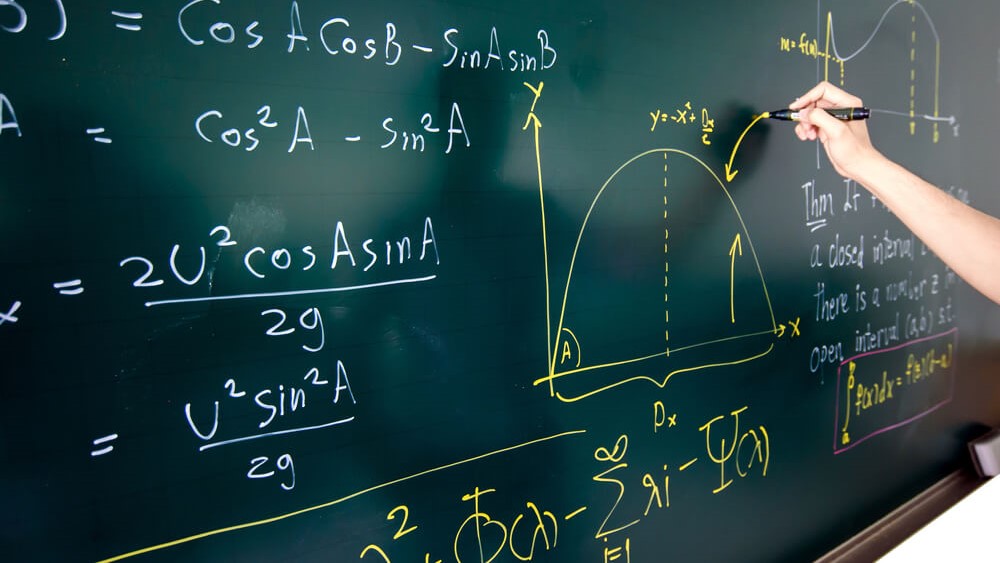 ) = Cos A CosB - SinAsinB
A = Cos² A - Sin² A
x = 2U² cosAsinA / 2g
= U² sin²A / 2g
Y
y = -x² + Dx/2
A
X
Dx
² + Φ(λ) - ∑ i=1 ∞ λi - Ψ(λ)
m = f(n)
x
Thm If
a closed interval
there is a number z
open interval (a,b) s.t.
∫ a b f(x)dx = f(z)(b-a)